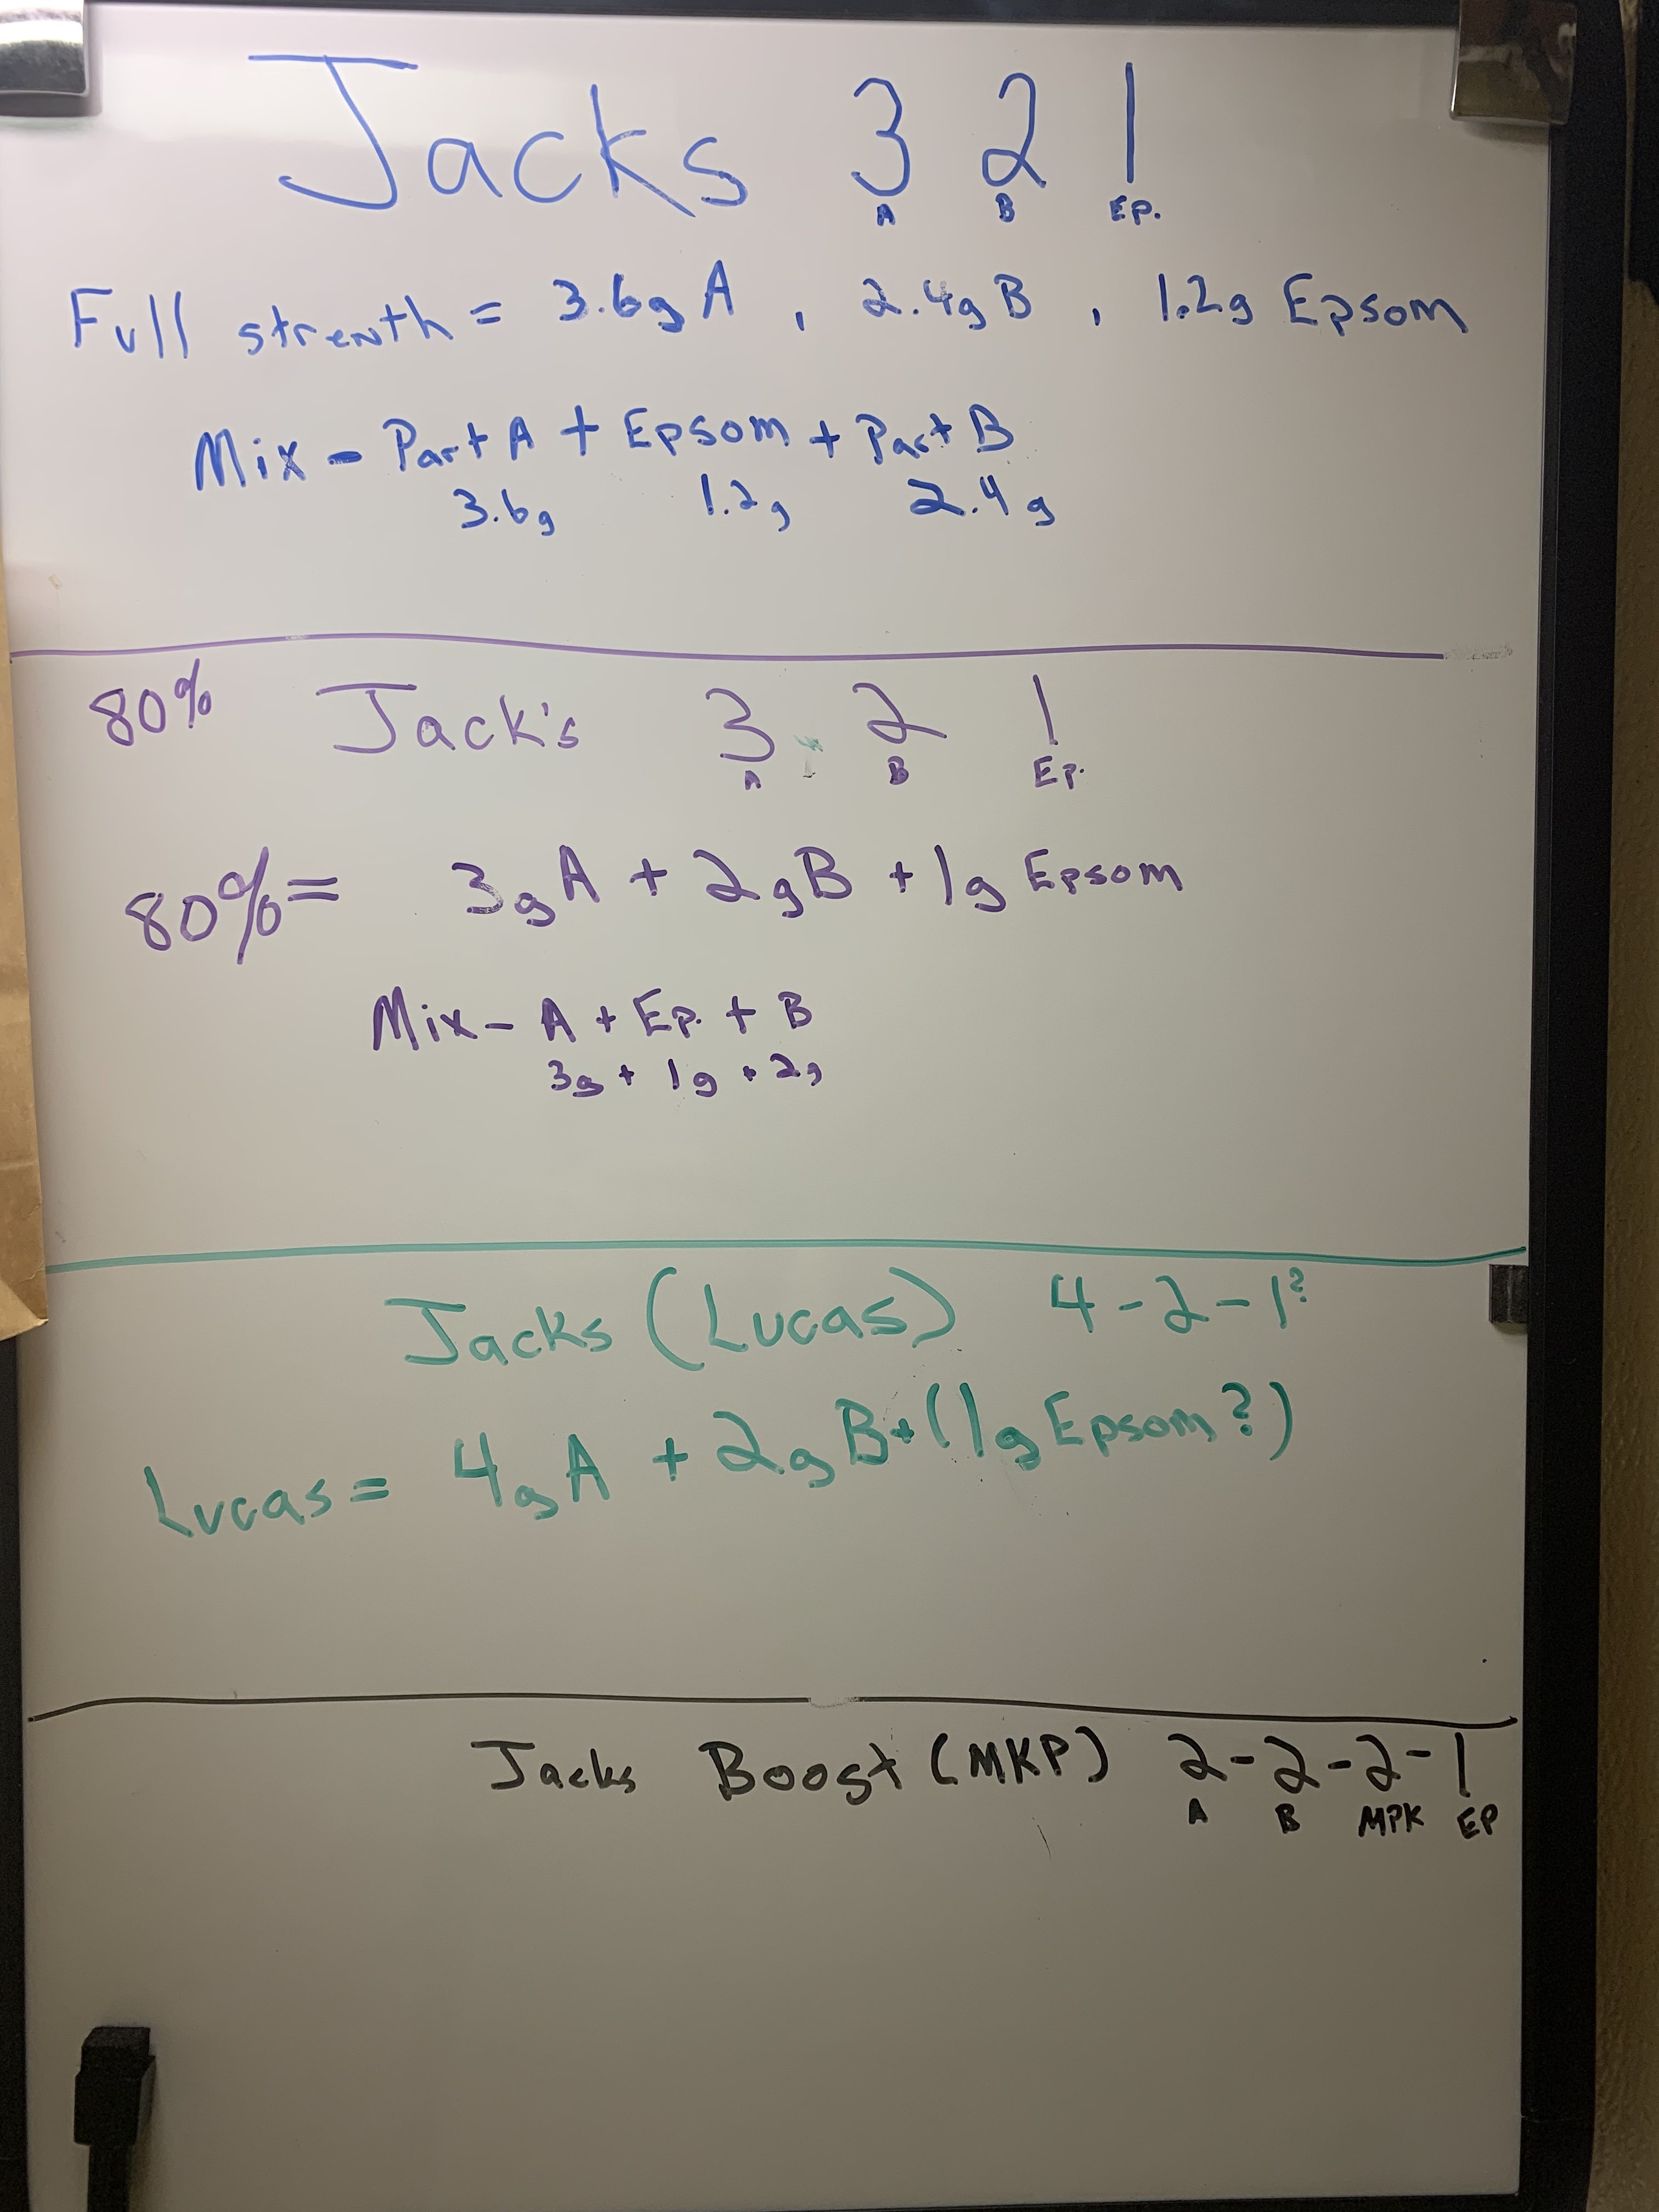 Jacks 3 2 1
A B EP.
Full strenth = 3.6g A , 2.4g B , 1.2g Epsom
Mix - Part A + Epsom + Part B
3.6g 1.2g 2.4g
80% Jack's 3 2 1
A B EP.
80% = 3g A + 2g B + 1g Epsom
Mix - A + EP. + B
3g + 1g + 2g
Jacks (Lucas) 4-2-1?
Lucas = 4g A + 2g B + (1g Epsom?)
Jacks Boost (MKP) 2-2-2-1
A B MPK EP